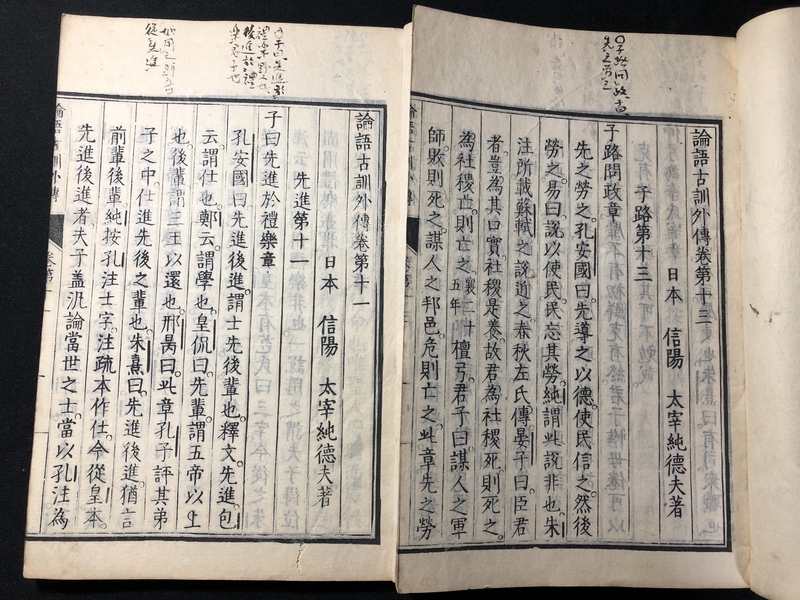 論語古訓外傳卷第十三
日本　信陽　太宰純德夫著
子路第十三
子路問政章
先之勞之。孔安國曰。先導之以德。使民信之。然後
勞之。易曰。說以使民。民忘其勞。純謂此說非也。朱
注所載蘇軾之說近之。春秋左氏傳。晏子曰。臣君
者豈為其口實。社稷是養。故君為社稷死。則死之。
為社稷亡。則亡之。襄二十五年檀弓。君子曰。謀人之軍
師。敗則死之。謀人之邦邑。危則亡之。此章先之勞
論語古訓外傳卷第十一
日本　信陽　太宰純德夫著
先進第十一
子曰先進於禮樂章
孔安國曰。先進後進。謂士先後輩也。釋文。先進。包
云。謂仕也。鄭云。謂學也。皇侃曰。先輩。謂五帝以上
也。後輩。謂三王以還也。邢昺曰。此章孔子評其弟
子之中。仕進先後之輩也。朱熹曰。先進後進。猶言
前輩後輩。純按孔注士字。注疏本作仕。今從皇本。
先進後進者。夫子蓋汎論當世之士。當以孔注為
論語古訓外傳